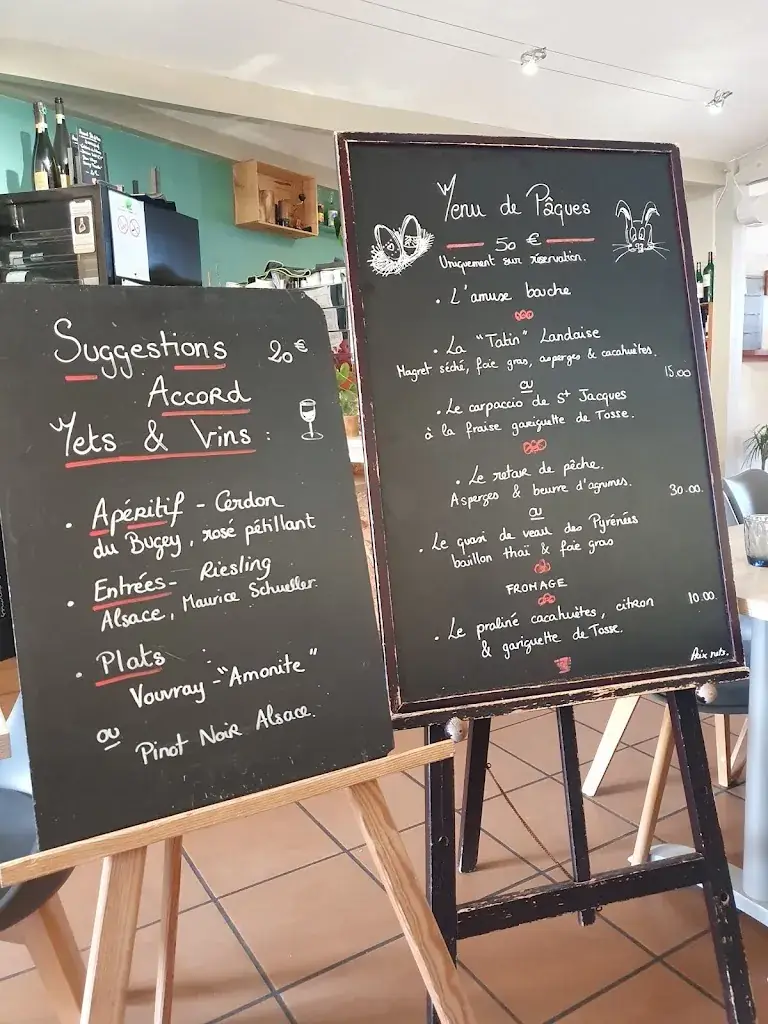 Suggestions 20€
Accord
Mets & Vins :
. Apéritif - Cerdon
du Bugey, rosé pétillant
. Entrées - Riesling
Alsace, Maurice Schueller.
. Plats :
Vouvray - "Amonite"
ou
Pinot Noir Alsace.
Menu de Pâques
50 €
Uniquement sur réservation.
. L'amuse bouche
. La "Tatin" Landaise
Magret séché, foie gras, asperges & cacahuètes.
15,00
ou
. Le carpaccio de St Jacques
à la fraise gariguette de Tosse.
. Le retour de pêche.
Asperges & beurre d'agrumes.
30.00.
ou
. Le quasi de veau des Pyrénées
bouillon thaï & foie gras
FROMAGE
. Le praliné cacahuètes, citron 10.00.
& gariguette de Tosse.
Prix nets.